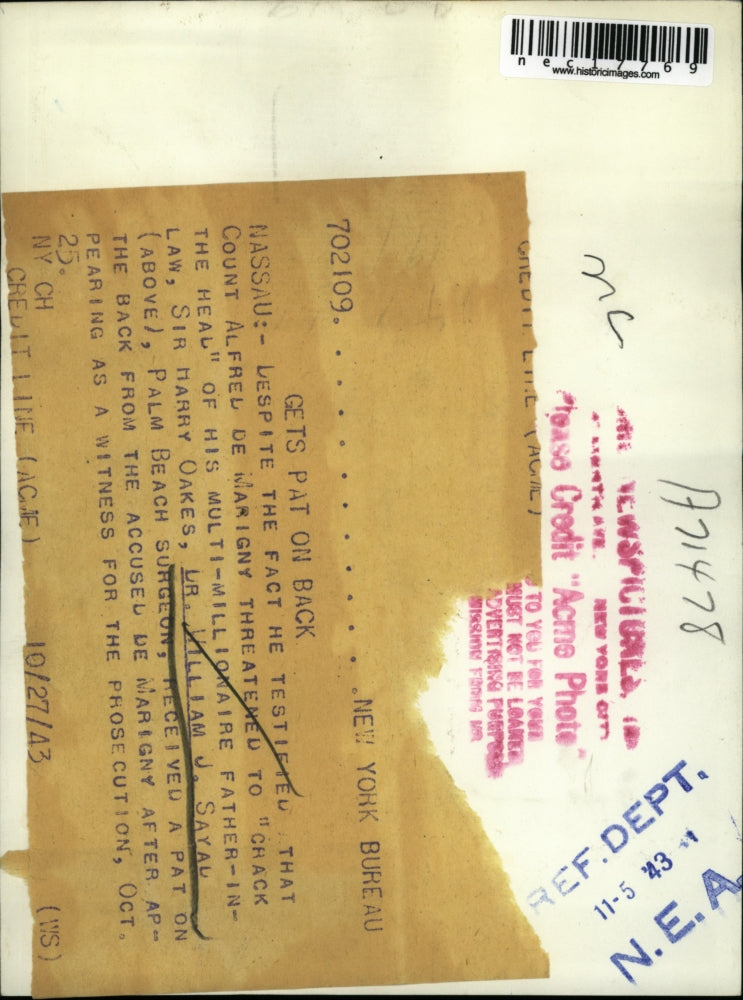 nec17769
www.historicimages.com
nc
A71478
NEW YORK CITY
Please Credit "Acme Photo"
TO YOU FOR YOUR
MUST NOT BE LOANED
ADVERTISING PURPOSES
REF. DEPT.
11-5 '43
N. E. A.
CREDIT LINE (ACME)
702109. . . . . . . . . . . . . . .NEW YORK BUREAU
GETS PAT ON BACK
NASSAU:- DESPITE THE FACT HE TESTIFIED THAT
COUNT ALFRED DE MARIGNY THREATENED TO "CRACK
THE HEAD" OF HIS MULTI-MILLIONAIRE FATHER-IN-
LAW, SIR HARRY OAKES, DR. WILLIAM J. SAYAD
(ABOVE), PALM BEACH SURGEON, RECEIVED A PAT ON
THE BACK FROM THE ACCUSED DE MARIGNY AFTER AP-
PEARING AS A WITNESS FOR THE PROSECUTION, OCT.
25.
NY CH
CREDIT LINE (ACME) 10/27/43 (WS)